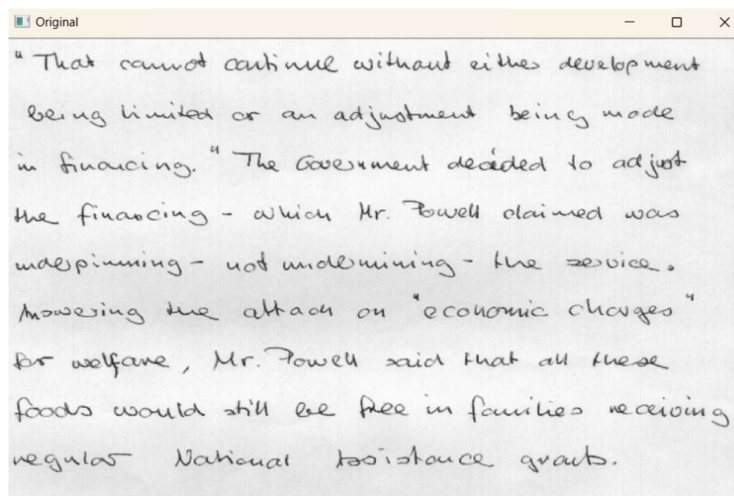 Original
" That cannot continue without either development
being limited or an adjustment being made
in financing." The Government decided to adjust
the financing - which Mr. Powell claimed was
underpinning - not undermining - the service.
Answering the attack on "economic charges"
for welfare, Mr. Powell said that all these
foods would still be free in families receiving
regular National Assistance grants.